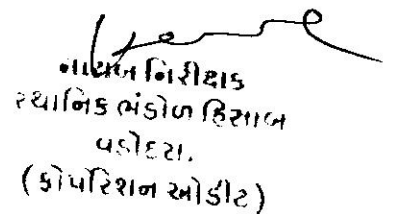 નાયબ નિરીક્ષક
સ્થાનિક ભંડોળ હિસાબ
વડોદરા.
(કોર્પોરેશન ઓડીટ)